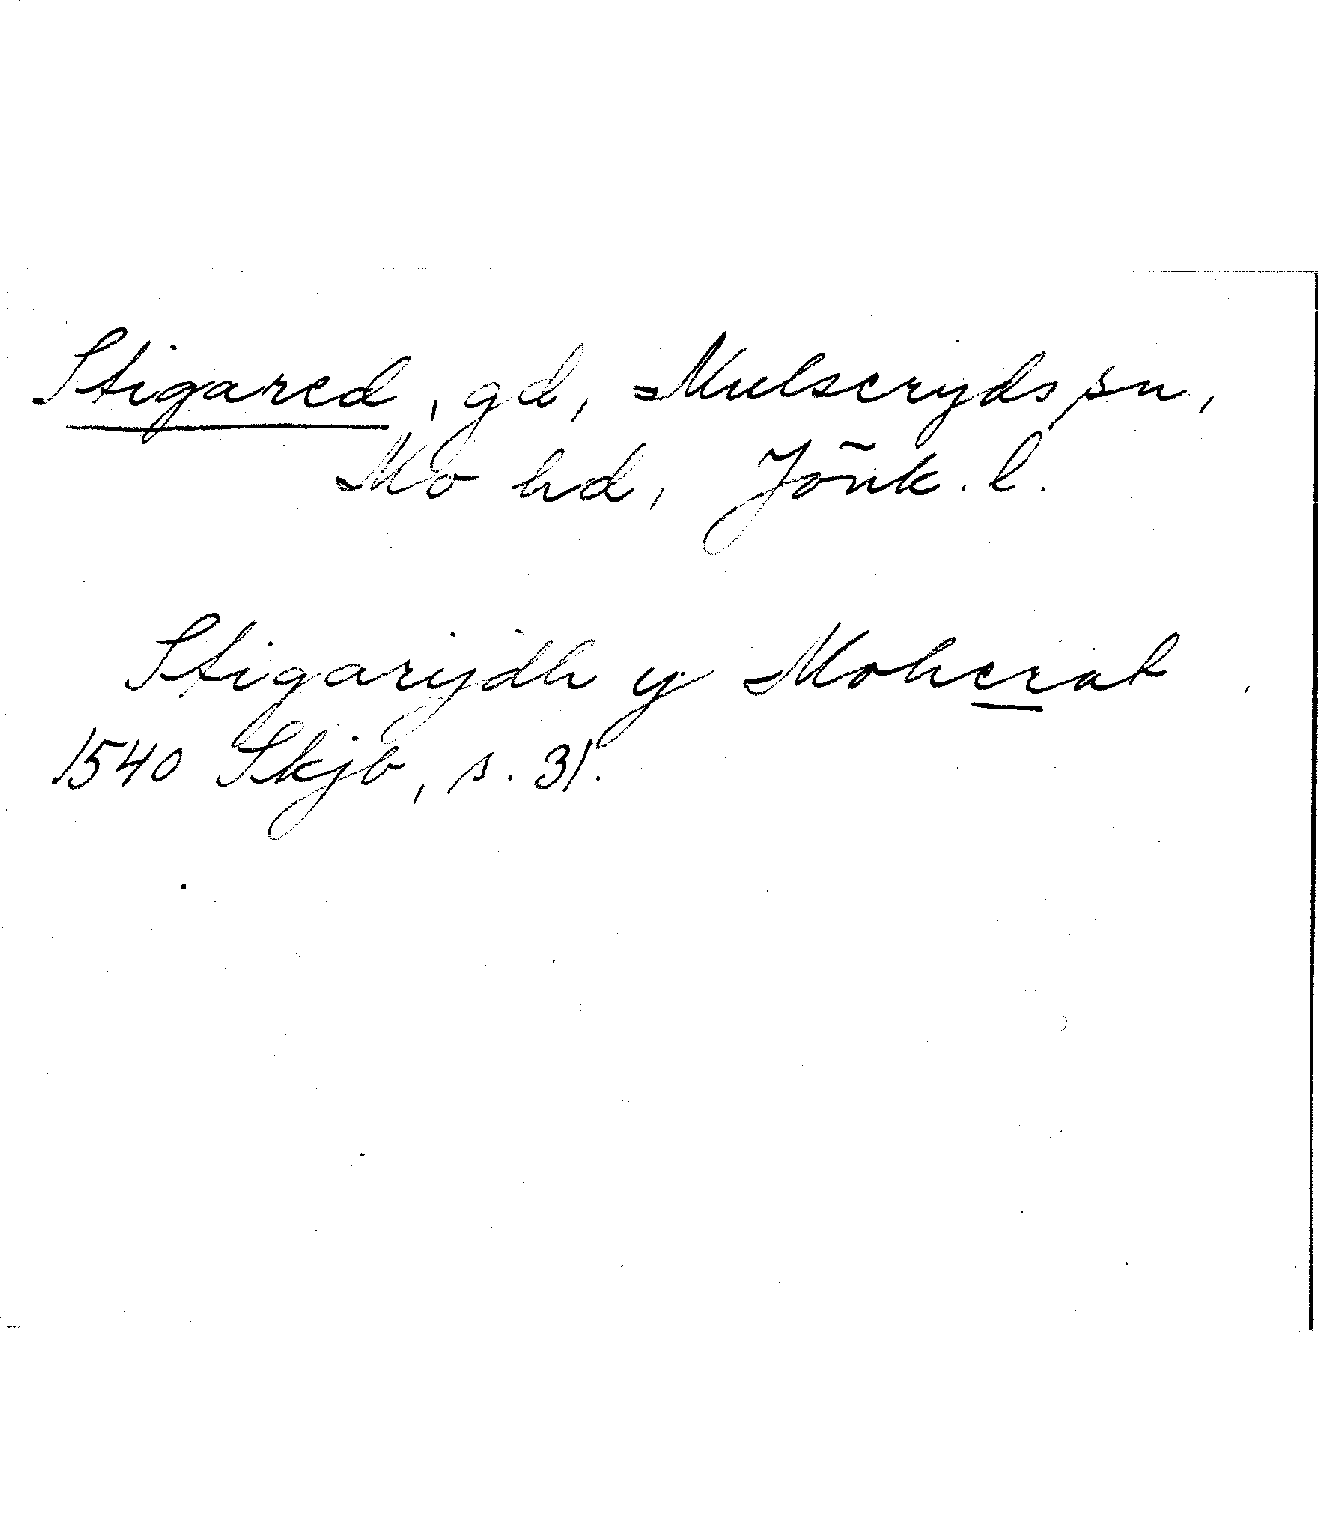 Stigared, gd, Mulseryds sn,
Mo hd, Jönk. l.
Stigarijdh y Moherat
1540 Skjb, s. 31.